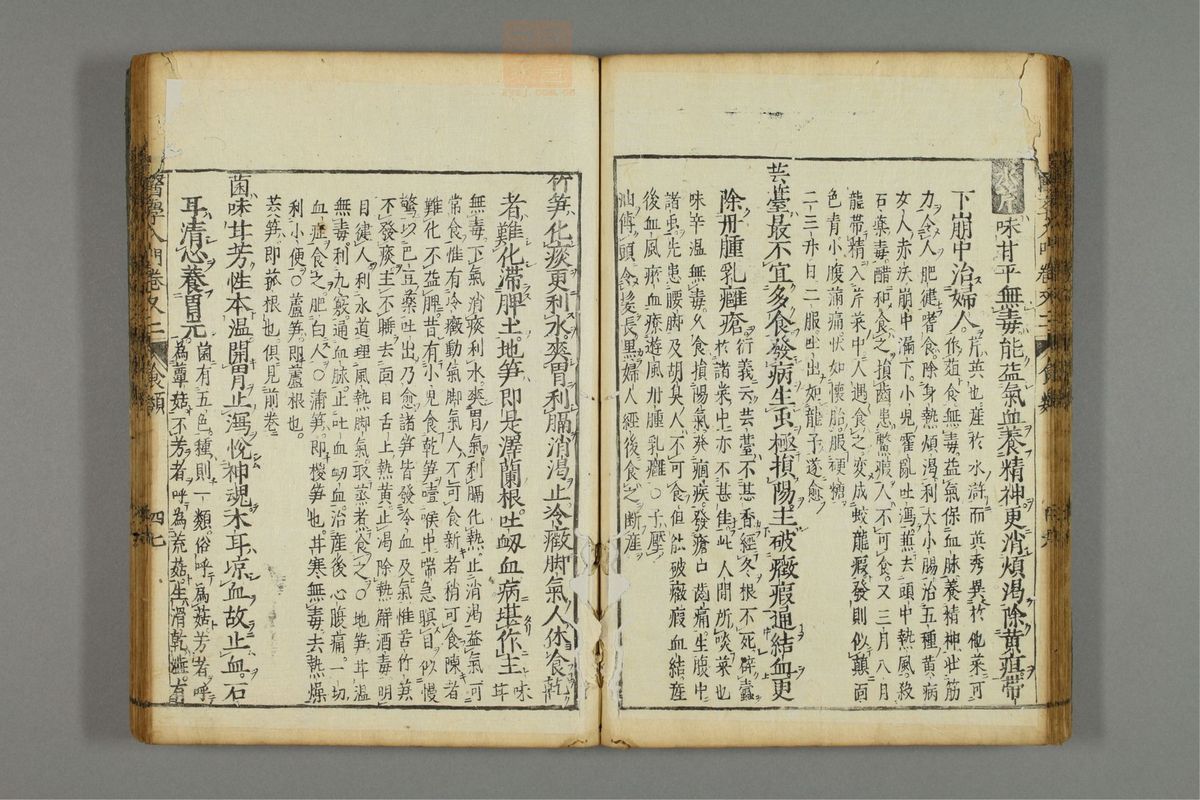 味甘平無毒能益氣血養精神更消煩渴除黃疸帶
下崩中治婦人芹英也産於水滸而英秀異於他菜可
作葅食無毒益氣保血脉養精神壯筋
力令人肥健嗜食除身熱煩渴利大小腸治五種黃病
女人赤沃崩中漏下小兒霍亂吐瀉兼去頭中熱風殺
石藥毒醋和食之損齒患鱉瘕人不可食又三月八月
龍帶精入芹菜中人遇食之変成蛟龍瘕發則似顛面
色青小腹滿痛狀如懷胎服硬糖
二三升日二服吐出如龍子遂愈
芸薹最不宜多食發病生虫極損陽主破癥瘕通結血更
除丹腫乳癰瘡衍義云芸薹不甚香經冬根不死辟蠹
於諸菜中亦不甚佳此人間所啖菜也
味辛温無毒久食損陽氣發痼疾發瘡口齒痛生腹中
諸虫先患腰脚及胡臭人不可食但能破癥瘕血結産
後血風瘀血療遊風丹腫乳癰○子壓
油傅頭令髮長黑婦人經後食之断産
竹笋化痰更利水爽胃利膈消渴止冷癥脚氣人休食乾
者難化滯脾土地笋即是澤蘭根吐衂血病堪作主味甘
無毒下氣消痰利水爽胃氣利膈化熱止消渴益氣可
常食惟有冷癥動氣脚氣人不可食新者稍可食陳者
難化不益脾昔有小兒食乾笋噎喉中喘急瞑目似慢
驚以巴豆藥吐出乃愈諸笋皆發冷血及氣惟苦竹笋
不發痰主不睡去面目舌上熱黃止渴除熱解酒毒明
目健人利水道理風熱脚氣取蒸煮食之○地笋甘温
無毒利九竅通血脉止吐血衂血治産後心腹痛一切
血症食之肥白人○蒲笋即椶笋也甘寒無毒去熱燥
利小便○蘆笋即蘆根也
茭笋即菰根也俱見前卷
菌味甘芳性本温開胃止瀉悅神魂木耳凉血故止血石
耳清心養胃元菌有五色種則一類俗呼爲菇芳者呼
為蕈菇不芳者呼為荒菇生滑乾澁有
醫學入門卷
食類
四七